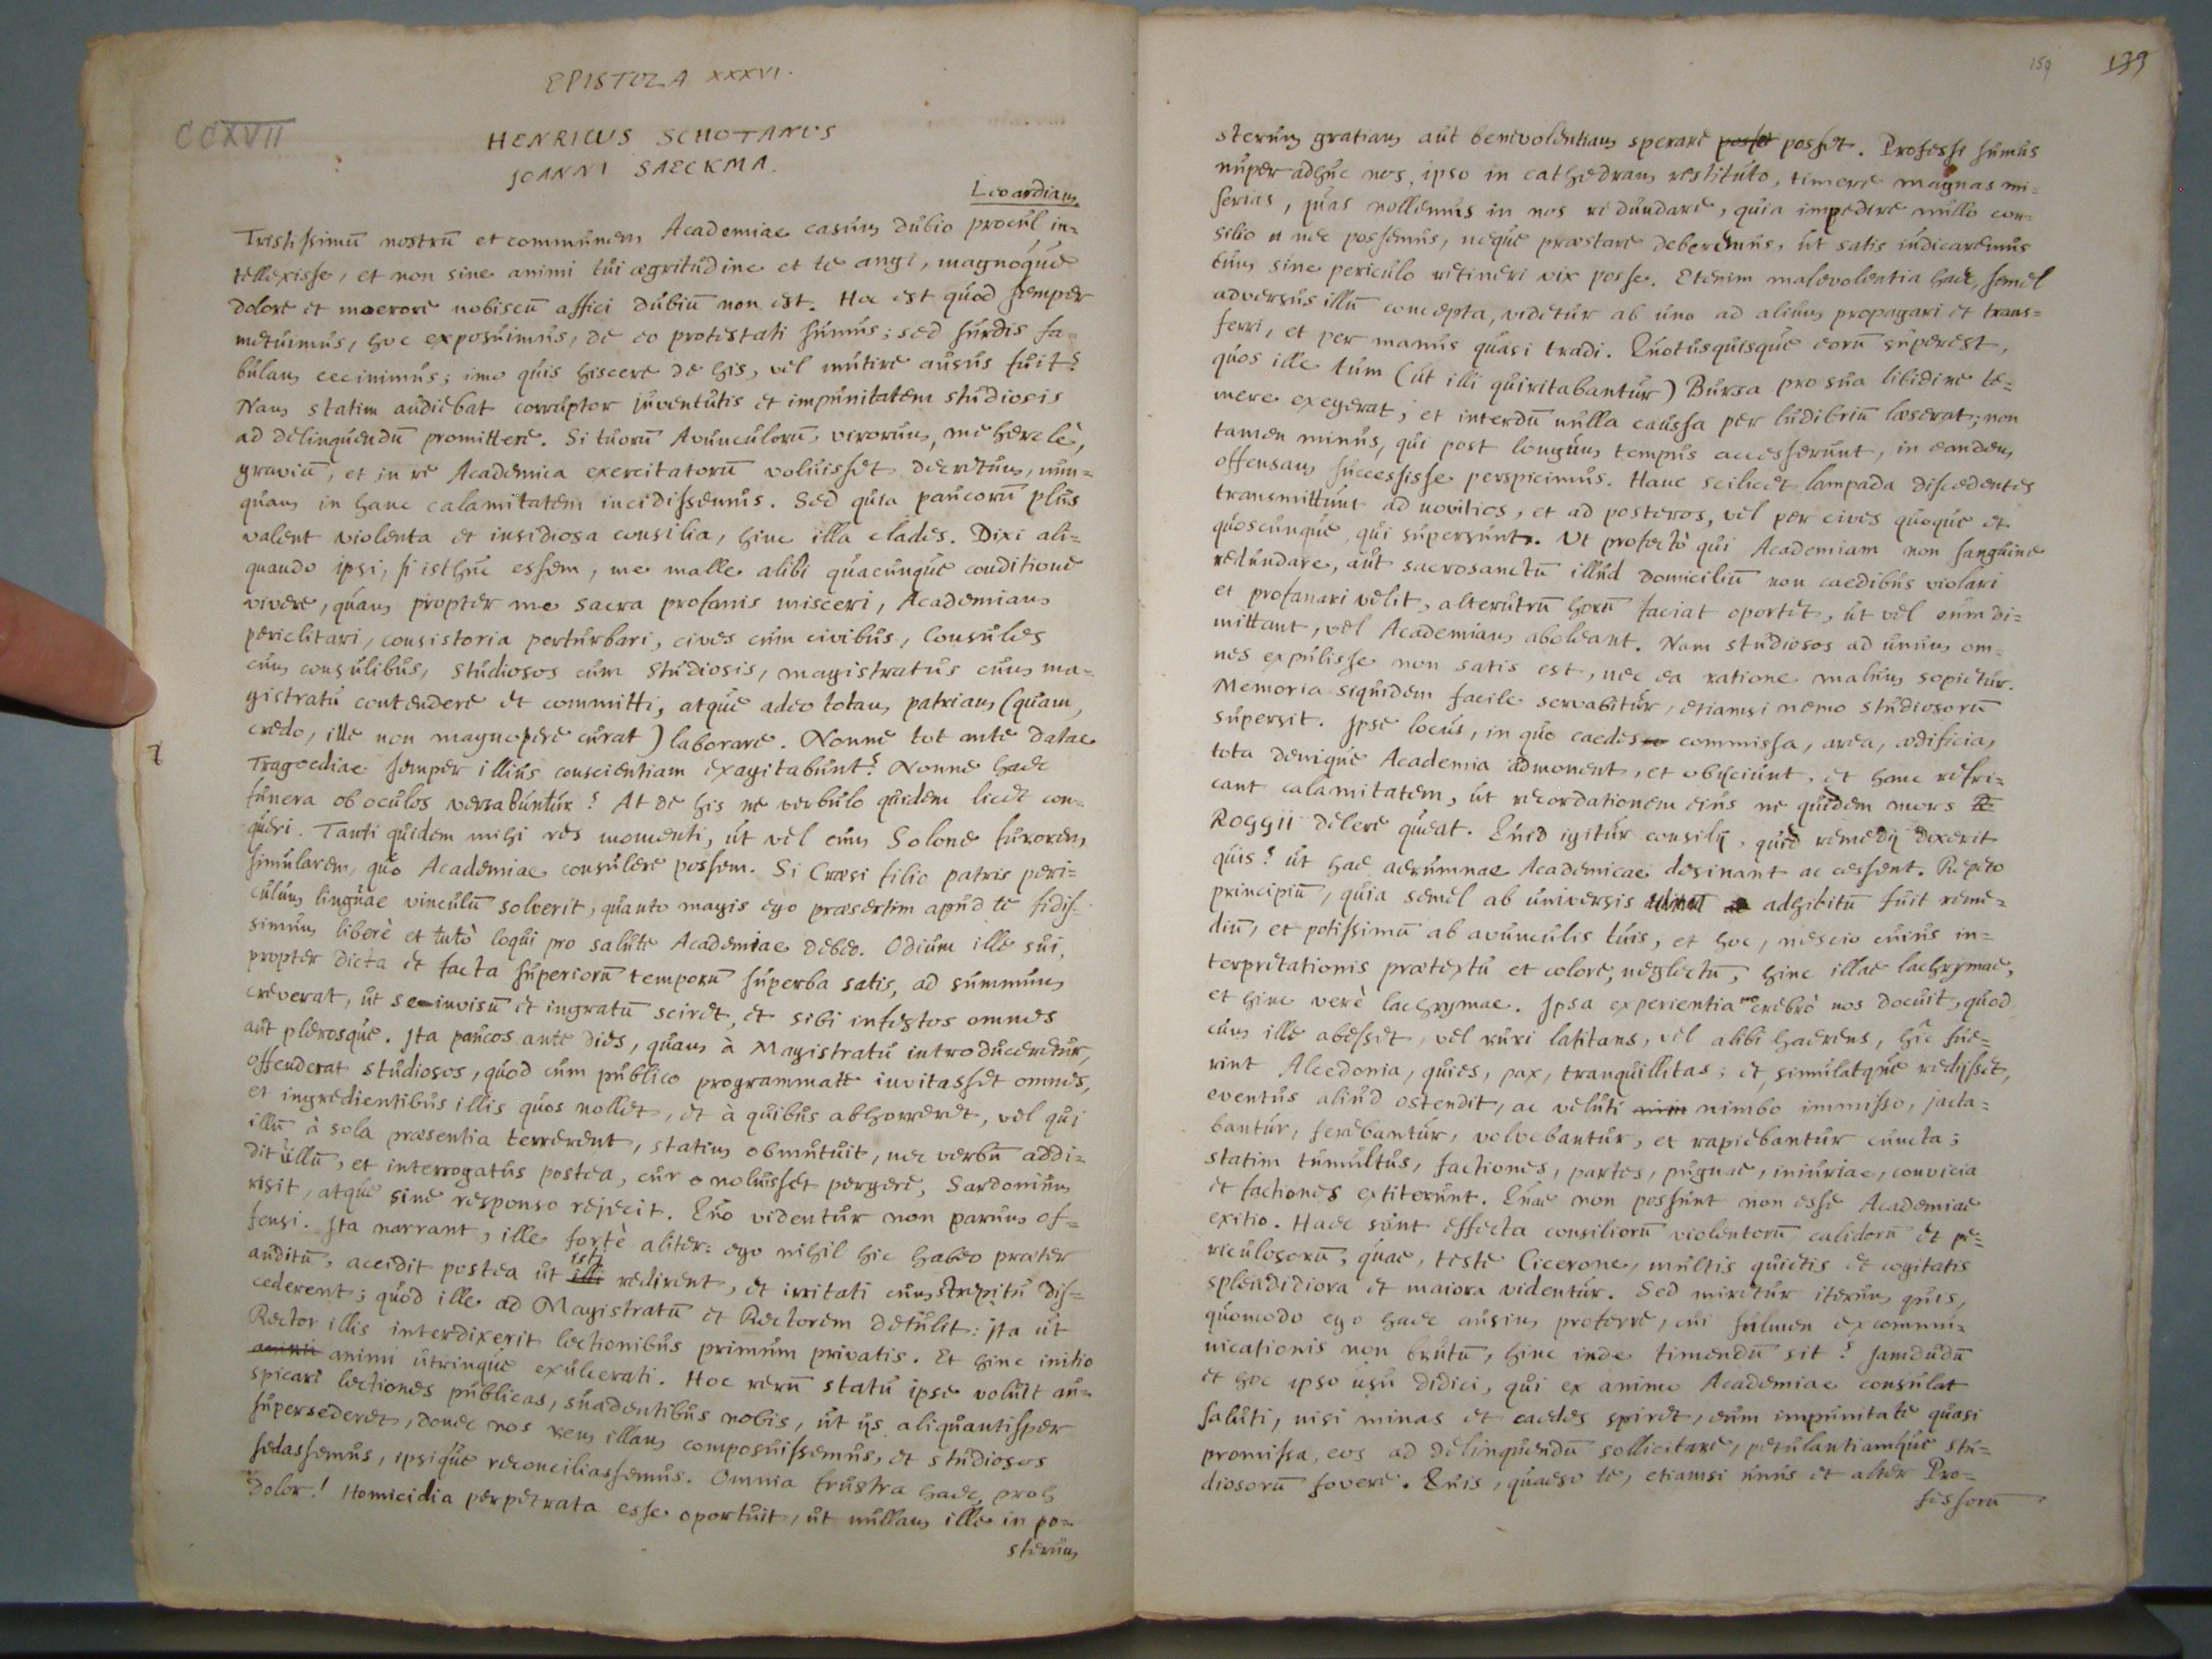 EPISTOLA XXXVI.
CCXVII
HENRICUS SCHOTANUS
JOANNI SAECKMA.
Leoardiam
Tristissimū nostrū et communem Academiae casum dubio procul in=
tellexisse, et non sine animi tui aegritudine et te angi, magnoque
dolore et moerore nobiscū affici dubiū non est. Hoc est quod semper
metuimus, hoc exposuimus, de eo protestati sumus; sed surdis fa=
bulam cecinimus; imo quis hiscere de his, vel mutire ausus fuit?
Nam statim audiebat corruptor juventutis et impunitatem studiosis
ad delinquendū promittere. Si tuorū Avunculorū, virorum, me hercle,
graviū, et in re Academica exercitatorū voluisset decretum, nun=
quam in hanc calamitatem incidissemus. Sed quia paucorū plus
valent violenta et insidiosa consilia, hinc illa clades. Dixi ali=
quando ipsi, si isthuc essem, me malle alibi quacunque conditione
vivere, quam propter me sacra profanis misceri, Academiam
periclitari, consistoria perturbari, cives cum civibus, Consules
cum consulibus, studiosos cum studiosis, magistratus cum ma=
gistratu contendere et committi, atque adeo totam patriam (quam,
credo, ille non magnopere curat) laborare. Nonne tot ante datae
Tragoediae semper illius conscientiam exagitabunt? Nonne haec
funera ob oculos versabuntur? At de his ne verbulo quidem licet con=
queri. Tanti quidem mihi res momenti, ut vel cum Solone furorem
simularem, quo Academiae consulere possem. Si Croesi filio patris peri=
culum linguae vinculū solverit, quanto magis ego praesertim apud te fidis=
simum liberè et tutò loqui pro salute Academiae debeo. Odium ille sui,
propter dicta et facta superiorū temporū superba satis, ad summum
creverat, ut se invisū et ingratū sciret, et sibi infestos omnes
aut plerosque. Ita paucos ante dies, quam à Magistratu introduceretur,
offenderat studiosos, quod cum publico programmate invitasset omnes,
et ingredientibus illis quos nollet, et à quibus abhorreret, vel qui
illū à sola praesentia terrerent, statim obmutuit, nec verbū addi=
dit ullū, et interrogatus postea, cur noluisset pergere, Sardonium
risit, atque sine responso rejecit. Quo videntur non parum of=
fensi. Ita narrant, ille fortè aliter: ego nihil hic habeo praeter
auditū, accidit postea ut illi isti redirent, et irritati cum strepitu dis=
cederent; quod ille ad Magistratū et Rectorem detulit: ita ut
Rector illis interdixerit lectionibus primum privatis. Et hinc initio
animi animi utrinque exulcerati. Hoc rerū statu ipse voluit au=
spicari lectiones publicas, suadentibus nobis, ut ijs aliquantisper
supersederet, donec nos rem illam composuissemus, et studiosos
sedassemus, ipsique reconciliassemus. Omnia frustra haec, proh
dolor! Homicidia perpetrata esse oportuit, ut nullam ille in po=
sterum
159 179
sterum gratiam aut benevolentiam sperare posset posset. Professi sumus
nuper adhuc nos, ipso in cathedram restituto, timere magnas mi=
serias, quas nollemus in nos redundare, quia impedire nullo con=
silio nec possemus, neque praestare deberemus, ut satis indicaremus
eum sine periculo retineri vix posse. Etenim malevolentia haec, semel
adversus illū concepta, videtur ab uno ad alium propagari et trans=
ferri, et per manus quasi tradi. Quotusquisque eorū superest,
quos ille tum (ut illi quiritabantur) Bursa pro sua libidine te=
mere exegerat, et interdū nulla caussa per ludibriū laeserat; non
tamen minus, qui post longum tempus accesserunt, in eandem
offensam successisse perspicimus. Hanc scilicet lampada discedentes
transmittunt ad novitios, et ad posteros, vel per cives quoque et
quoscunque, qui supersunt. Ut profectò qui Academiam non sanguine
redundare, aut sacrosanctū illud domiciliū non caedibus violari
et profanari velit, alterutrū horū faciat oportet, ut vel eum di=
mittant, vel Academiam aboleant. Nam studiosos ad unum om=
nes expulisse non satis est, nec ea ratione malum sopietur.
Memoria siquidem facile servabitur, etiamsi nemo studiosorū
supersit. Ipse locus, in quo caedes commissa, area, aedificia,
tota denique Academia admonent, et obijciunt, et hanc refri=
cant calamitatem, ut recordationem eius ne quidem mors
Roggii delere queat. Quid igitur consilij, quid remedij dixerit
quis? ut hae aerumnae Academicae desinant ac cessent. Repeto
principiū, quia semel ab universis adhibitū fuit reme=
diū, et potissimū ab avunculis tuis, et hoc, nescio cuius in=
terpretationis praetextu et colore, neglectū, hinc illae lachrymae,
et hinc verè lachrymae. Ipsa experientia crebrò nos docuit, quod
cum ille abesset, vel ruri latitans, vel alibi haerens, hîc fue=
rint Alcedonia, quies, pax, tranquillitas; et simulatque redijsset,
eventus aliud ostendit, ac veluti nimbo immisso, jacta=
bantur, ferebantur, volvebantur, et rapiebantur cuncta;
statim tumultus, factiones, partes, pugnae, iniuriae, convicia
et factiones extiterunt. Quae non possunt non esse Academiae
exitio. Haec sunt effecta consiliorū violentorū calidorū et pe=
riculosorū, quae, teste Cicerone, multis quietis et cogitatis
splendidiora et maiora videntur. Sed miretur iterum quis,
quomodo ego haec ausim proferre, cui fulmen excommu=
nicationis non brutū, hinc inde timendū sit? Jamdudū
et hoc ipso usu didici, qui ex animo Academiae consulat
saluti, nisi minas et caedes spiret, eum impunitate quasi
promissa, eos ad delinquendū sollicitare, petulantiamque stu=
diosorū fovere. Quis, quaeso te, etiamsi unus et alter Pro=
fessorū